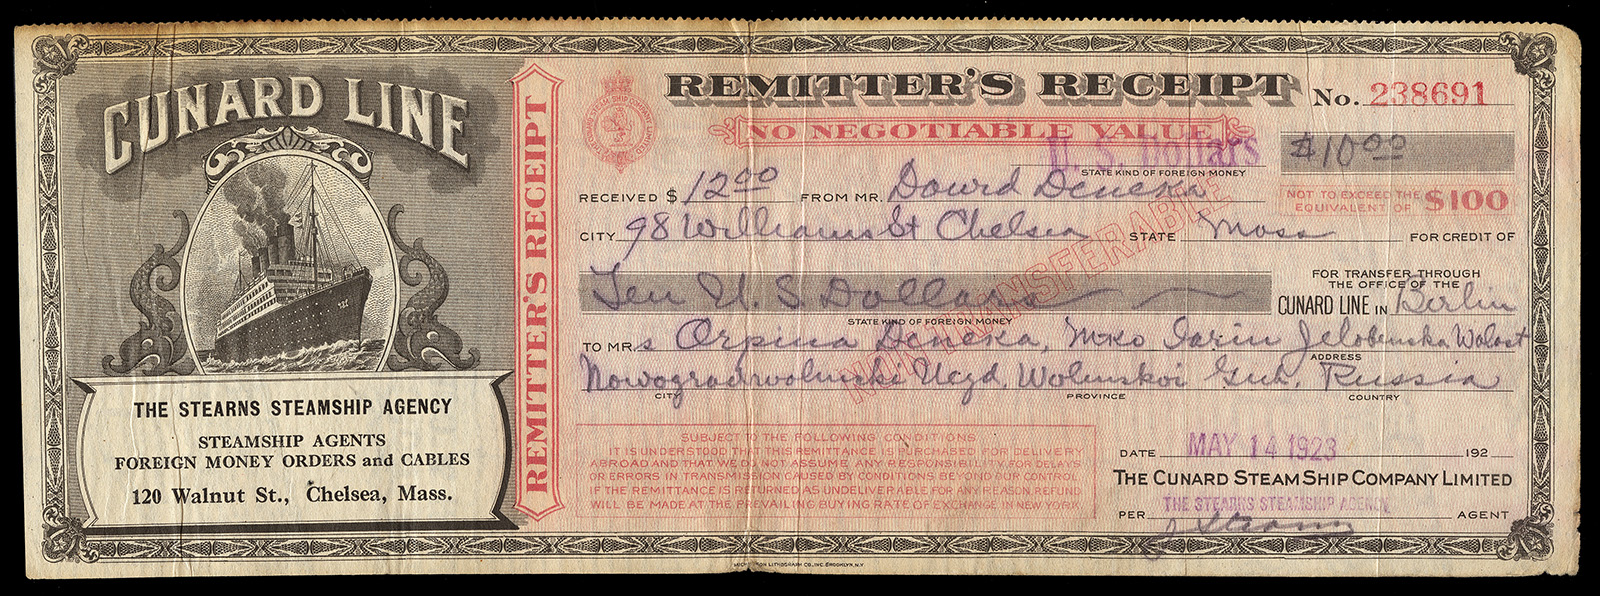 CUNARD LINE
THE STEARNS STEAMSHIP AGENCY
STEAMSHIP AGENTS
FOREIGN MONEY ORDERS and CABLES
120 Walnut St., Chelsea, Mass.
REMITTER'S RECEIPT
REMITTER'S RECEIPT No. 238691
NO NEGOTIABLE VALUE
U. S. Dollars $10.00
STATE KIND OF FOREIGN MONEY
RECEIVED $ 12.00 FROM MR. Dawid Deneka
NOT TO EXCEED THE EQUIVALENT OF $100
CITY 98 Williams St Chelsea STATE Mass FOR CREDIT OF
NON TRANSFERABLE
Ten U. S. Dollars
STATE KIND OF FOREIGN MONEY
FOR TRANSFER THROUGH
THE OFFICE OF THE
CUNARD LINE IN Berlin
TO MRs Orpina Deneka, Mko Jarin Jelobenska Walost
ADDRESS
Uezd. Wolinskoi Gub. Russia
CITY PROVINCE COUNTRY
SUBJECT TO THE FOLLOWING CONDITIONS
IT IS UNDERSTOOD THAT THIS REMITTANCE IS PURCHASED FOR DELIVERY
ABROAD AND THAT WE DO NOT ASSUME ANY RESPONSIBILITY FOR DELAYS
OR ERRORS IN TRANSMISSION CAUSED BY CONDITIONS BEYOND OUR CONTROL
IF THE REMITTANCE IS RETURNED AS UNDELIVERABLE FOR ANY REASON, REFUND
WILL BE MADE AT THE PREVAILING BUYING RATE OF EXCHANGE IN NEW YORK
DATE MAY 14 1923 192
THE CUNARD STEAM SHIP COMPANY LIMITED
THE STEARNS STEAMSHIP AGENCY
PER J Stearns AGENT
LITHOGRAPH CO., INC. BROOKLYN, N.Y.